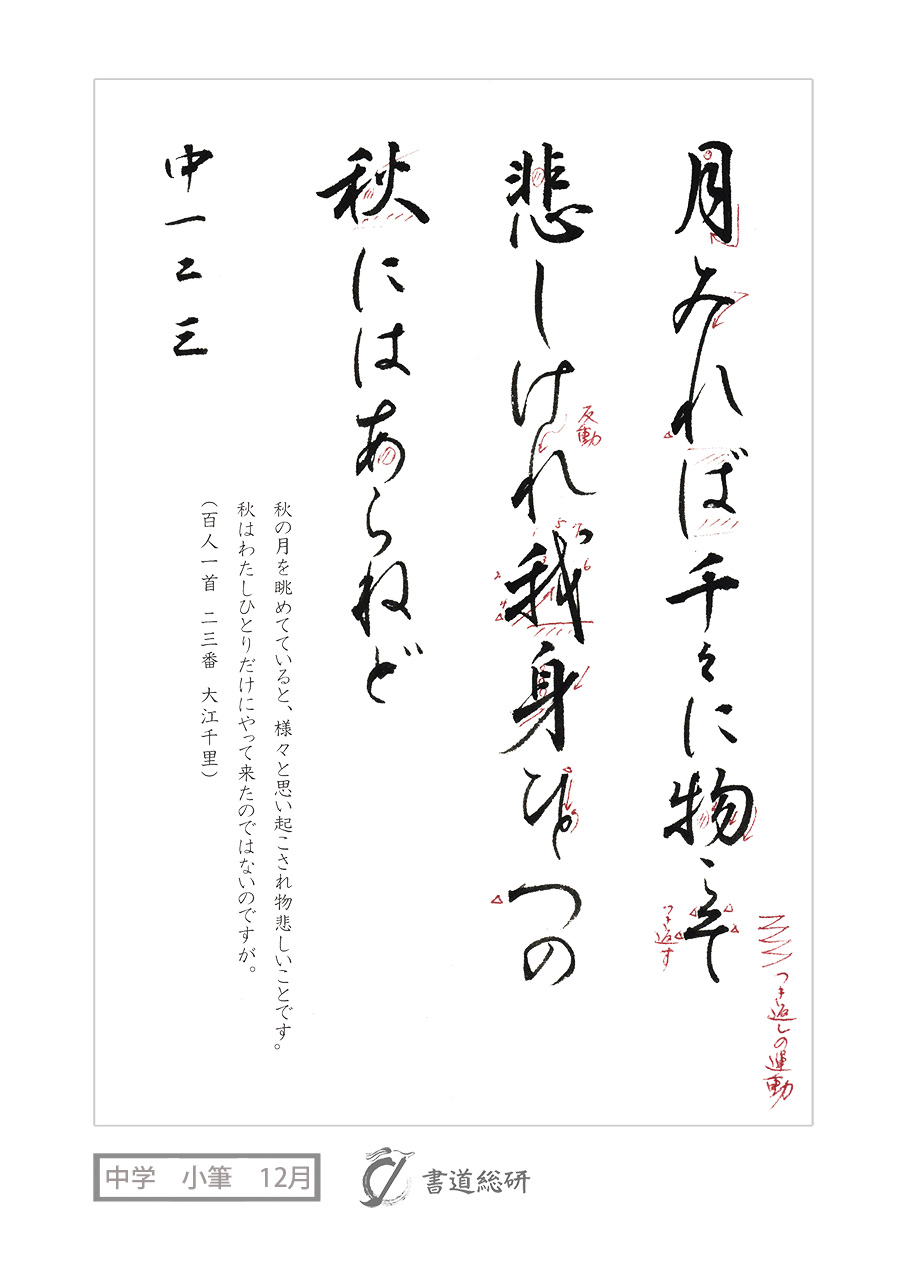 つき返しの運動
月みれば千々に物こそ
つき返す
悲しけれ我身ひとつの
反動
秋にはあらねど
秋の月を眺めてていると、様々と思い起こされ物悲しいことです。
秋はわたしひとりだけにやって来たのではないのですが。
(百人一首 二三番 大江千里)
中一二三
中学 小筆 12月
書道総研